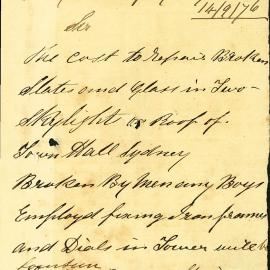 14/9/76
Sir
The Cost to Repair Broken
Slates and Glass in Two
Skylight & Roof of
Town Hall Sydney
Broken By Men any Boys
Employd fixing Iron frames
and Dials in Tower will be
fourteen